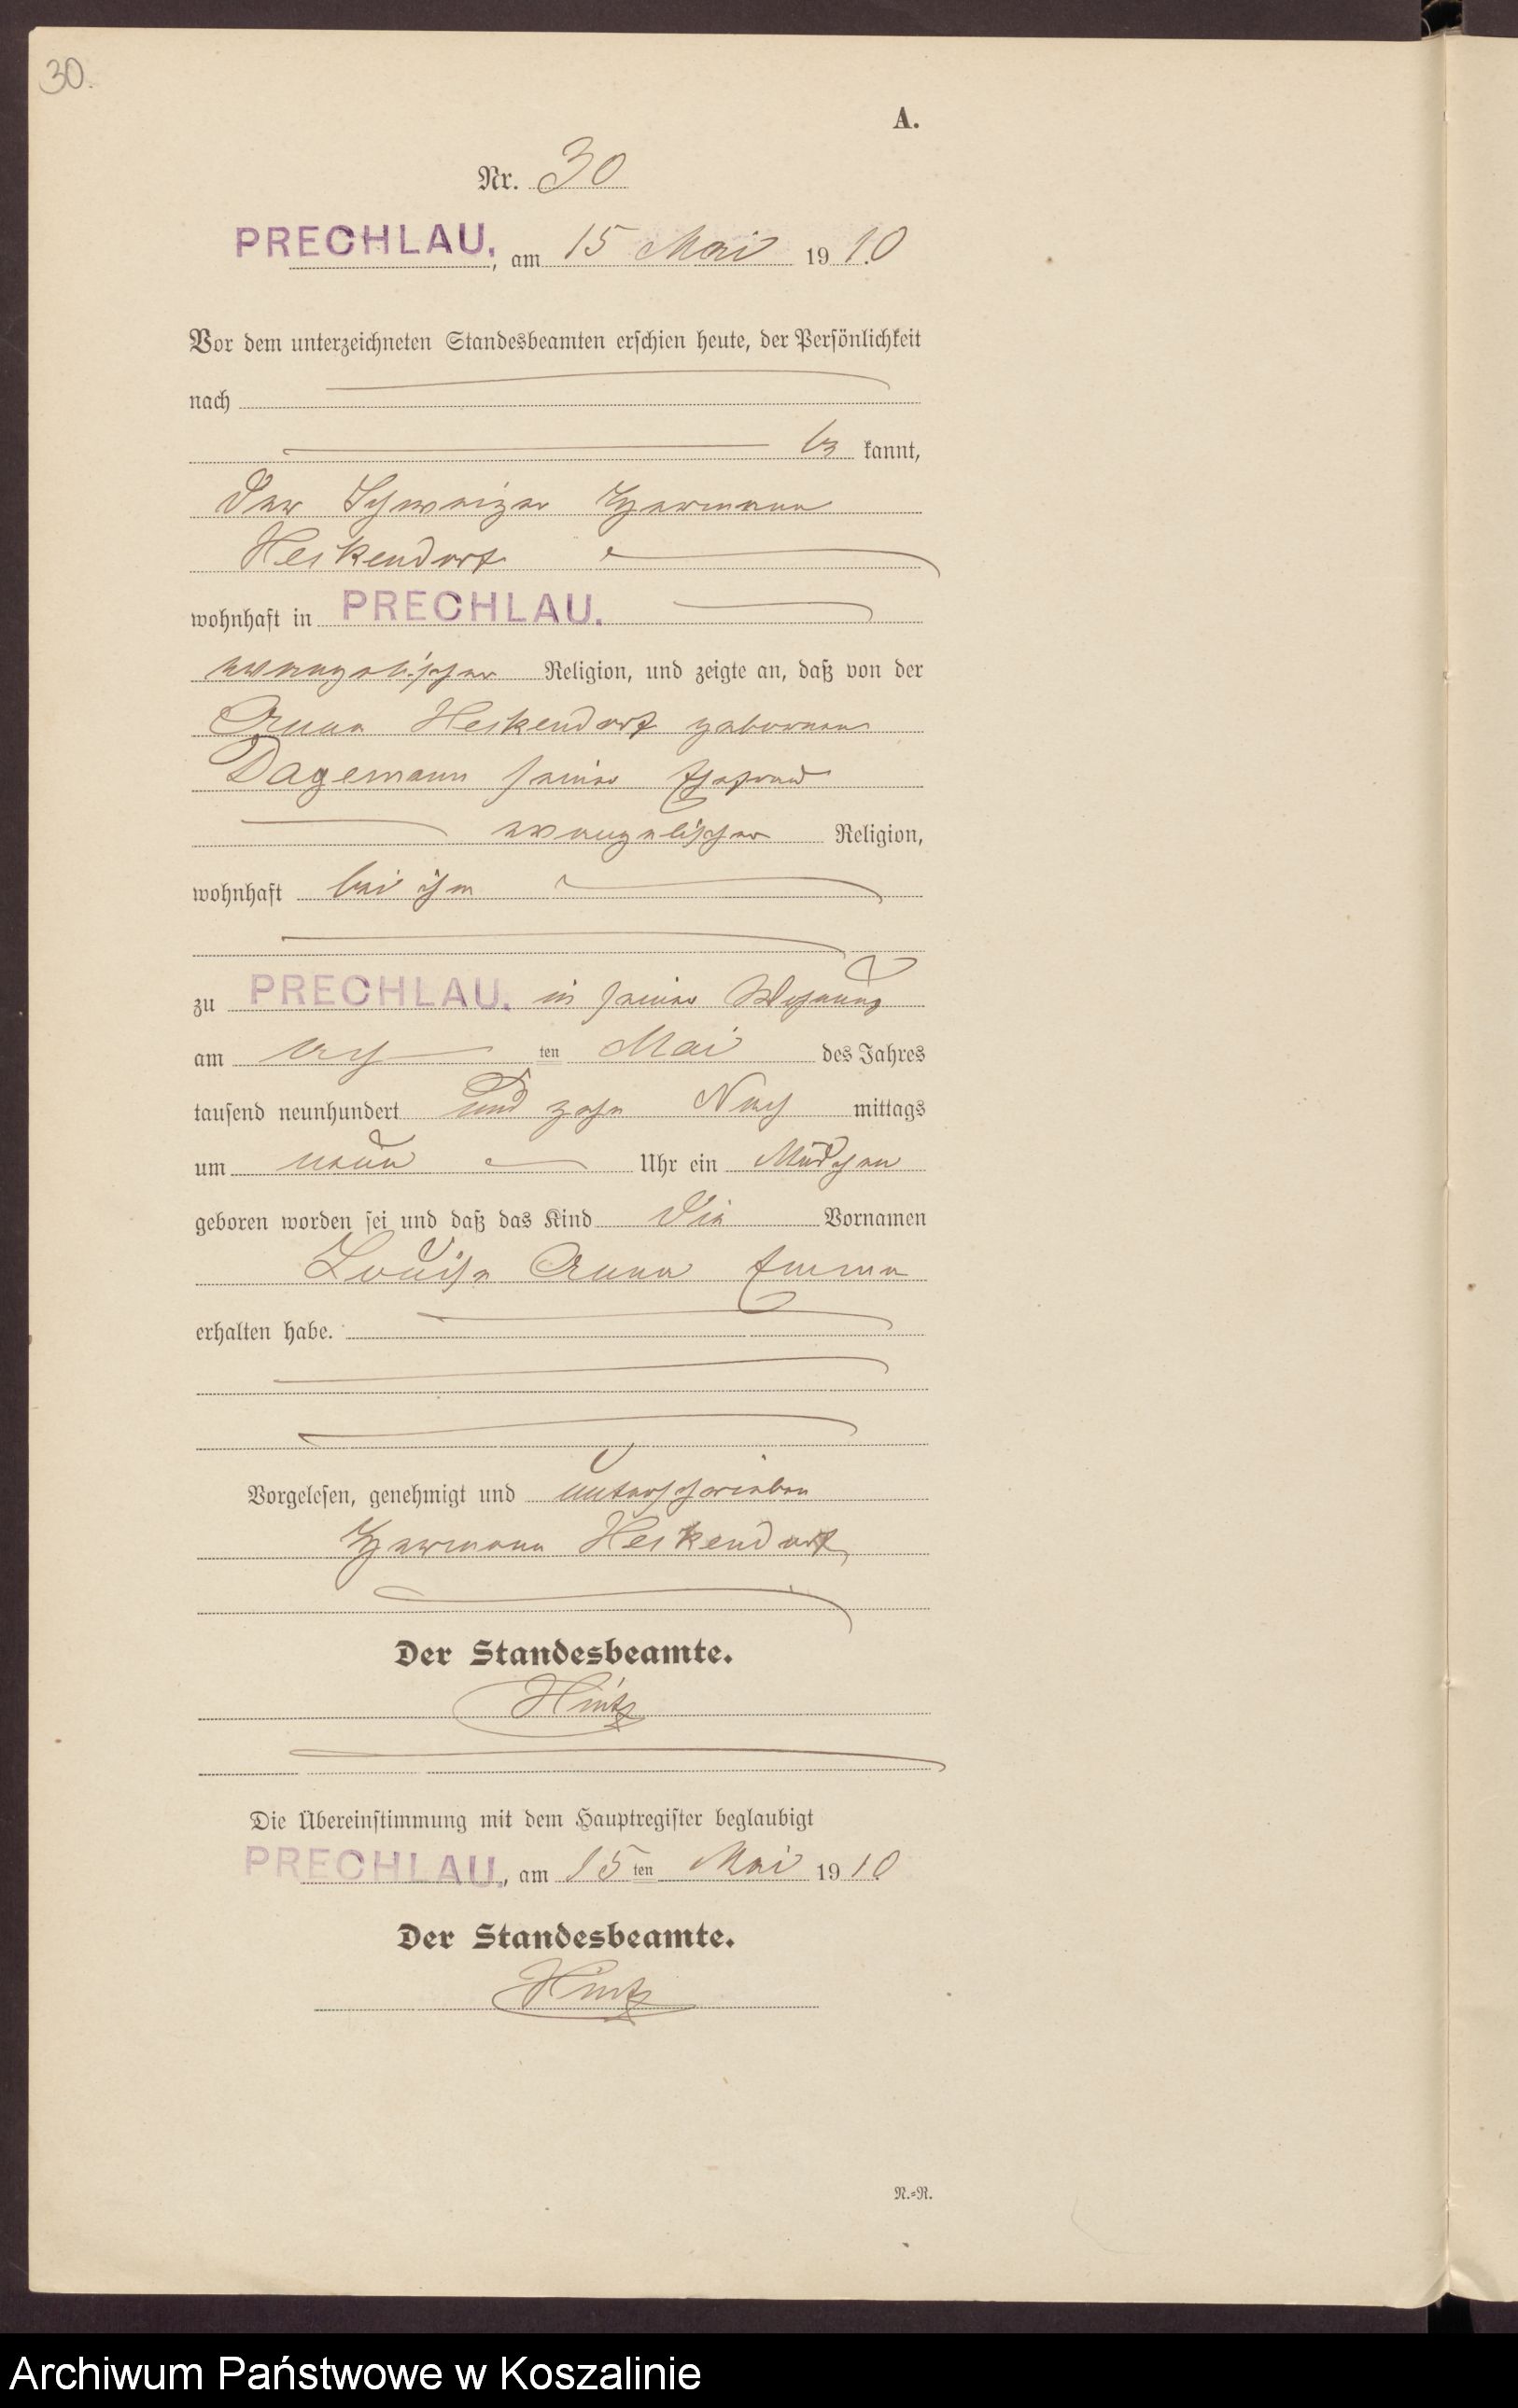 30.
A.
Nr. 30
PRECHLAU, am 15 Mai 1910
Vor dem unterzeichneten Standesbeamten erschien heute, der Persönlichkeit
nach
be kannt,
der Schweizer Hermann
Heikendorf
wohnhaft in PRECHLAU.
evangelischer Religion, und zeigte an, daß von der
Anna Heikendorf geborenen
Dagemann seiner Ehefrau
evangelischer Religion,
wohnhaft bei ihm
zu PRECHLAU. in seiner Wohnung
am acht ten Mai des Jahres
tausend neunhundert und zehn Nach mittags
um neun Uhr ein Mädchen
geboren worden sei und daß das Kind die Vornamen
Louise Anna Emma
erhalten habe.
Vorgelesen, genehmigt und unterschrieben
Hermann Heikendorf
Der Standesbeamte.
Hintz
Die Übereinstimmung mit dem Hauptregister beglaubigt
PRECHLAU, am 15 ten Mai 1910
Der Standesbeamte.
Hintz
N.=R.
Archiwum Państwowe w Koszalinie